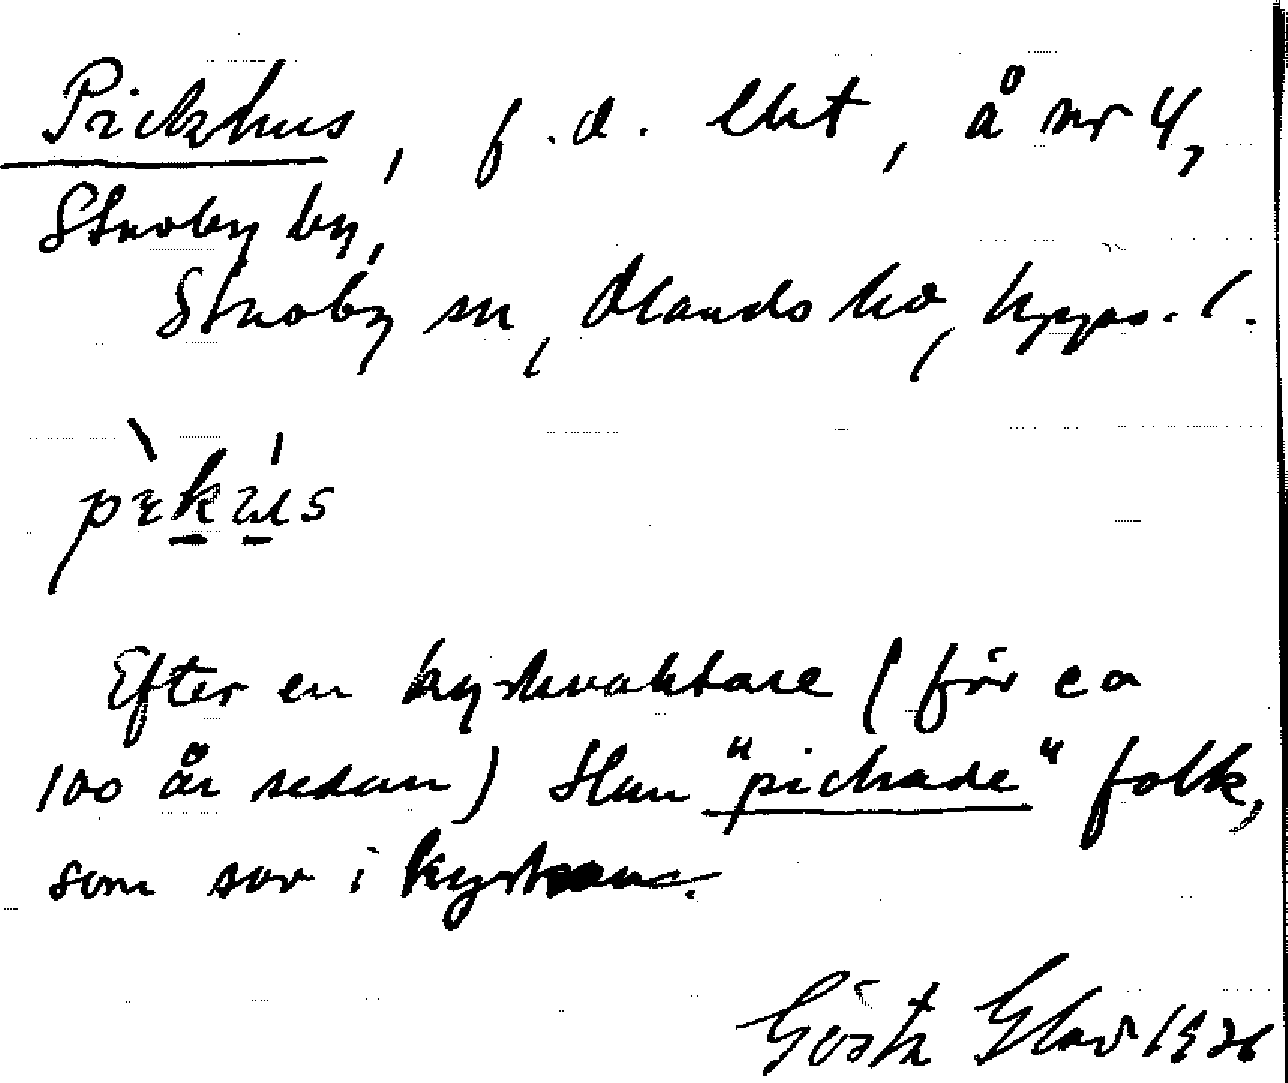 Pickhus, f.d. lht, å nr 4,
Skuoby by,
Skuoby sn, Olands hd, Upps. l.
pɩ̀kús
Efter en kyrkvaktare (för ca
100 år sedan) Han "pickade" folk,
som sov i kyrkan.
Gösta Glad 1926